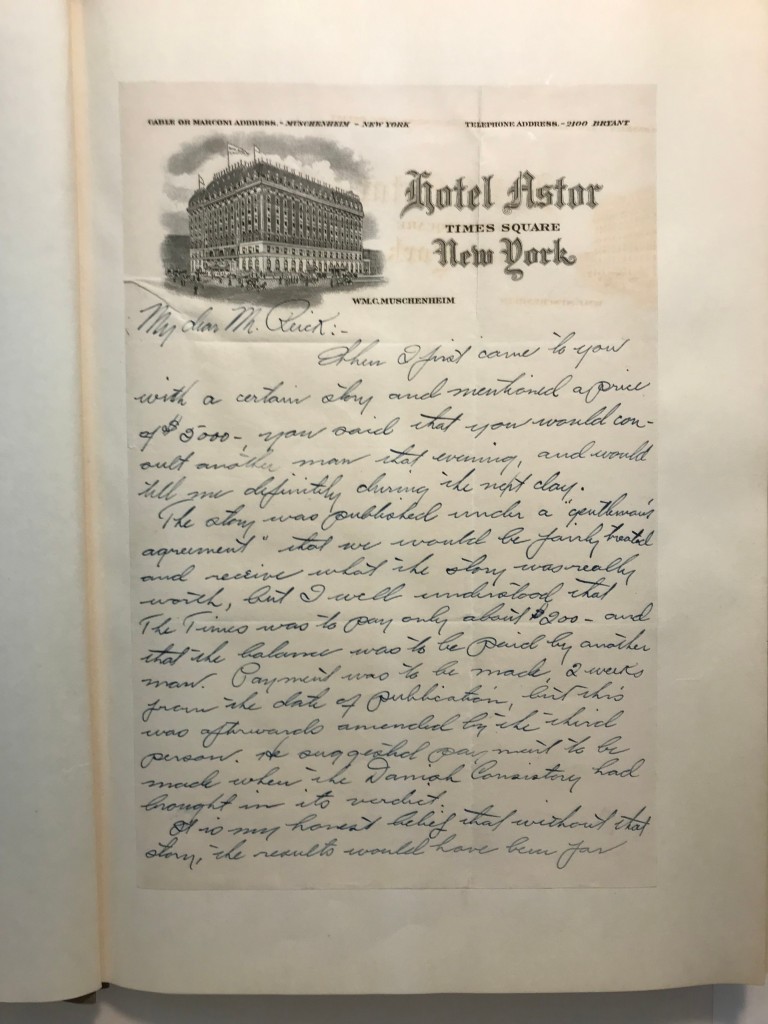 CABLE OR MARCONI ADDRESS. - MUSCHENHEIM - NEW YORK
TELEPHONE ADDRESS. - 2100 BRYANT
Hotel Astor
TIMES SQUARE
New York
WM. C. MUSCHENHEIM
My dear Mr. Reick:-
When I first came to you
with a certain story and mentioned a price
of $5000-, you said that you would con-
sult another man that evening, and would
tell me definitely during the next day.
The story was published under a "gentleman's
agreement" that we would be fairly treated
and receive what the story was really
worth, but I well understood that
The Times was to pay only about $200- and
that the balance was to be paid by another
man. Payment was to be made, 2 weeks
from the date of publication, but this
was afterwards amended by the third
person. He suggested payment to be
made when the Danish Consistory had
brought in its verdict.
It is my honest belief that without that
story, the results would have been far